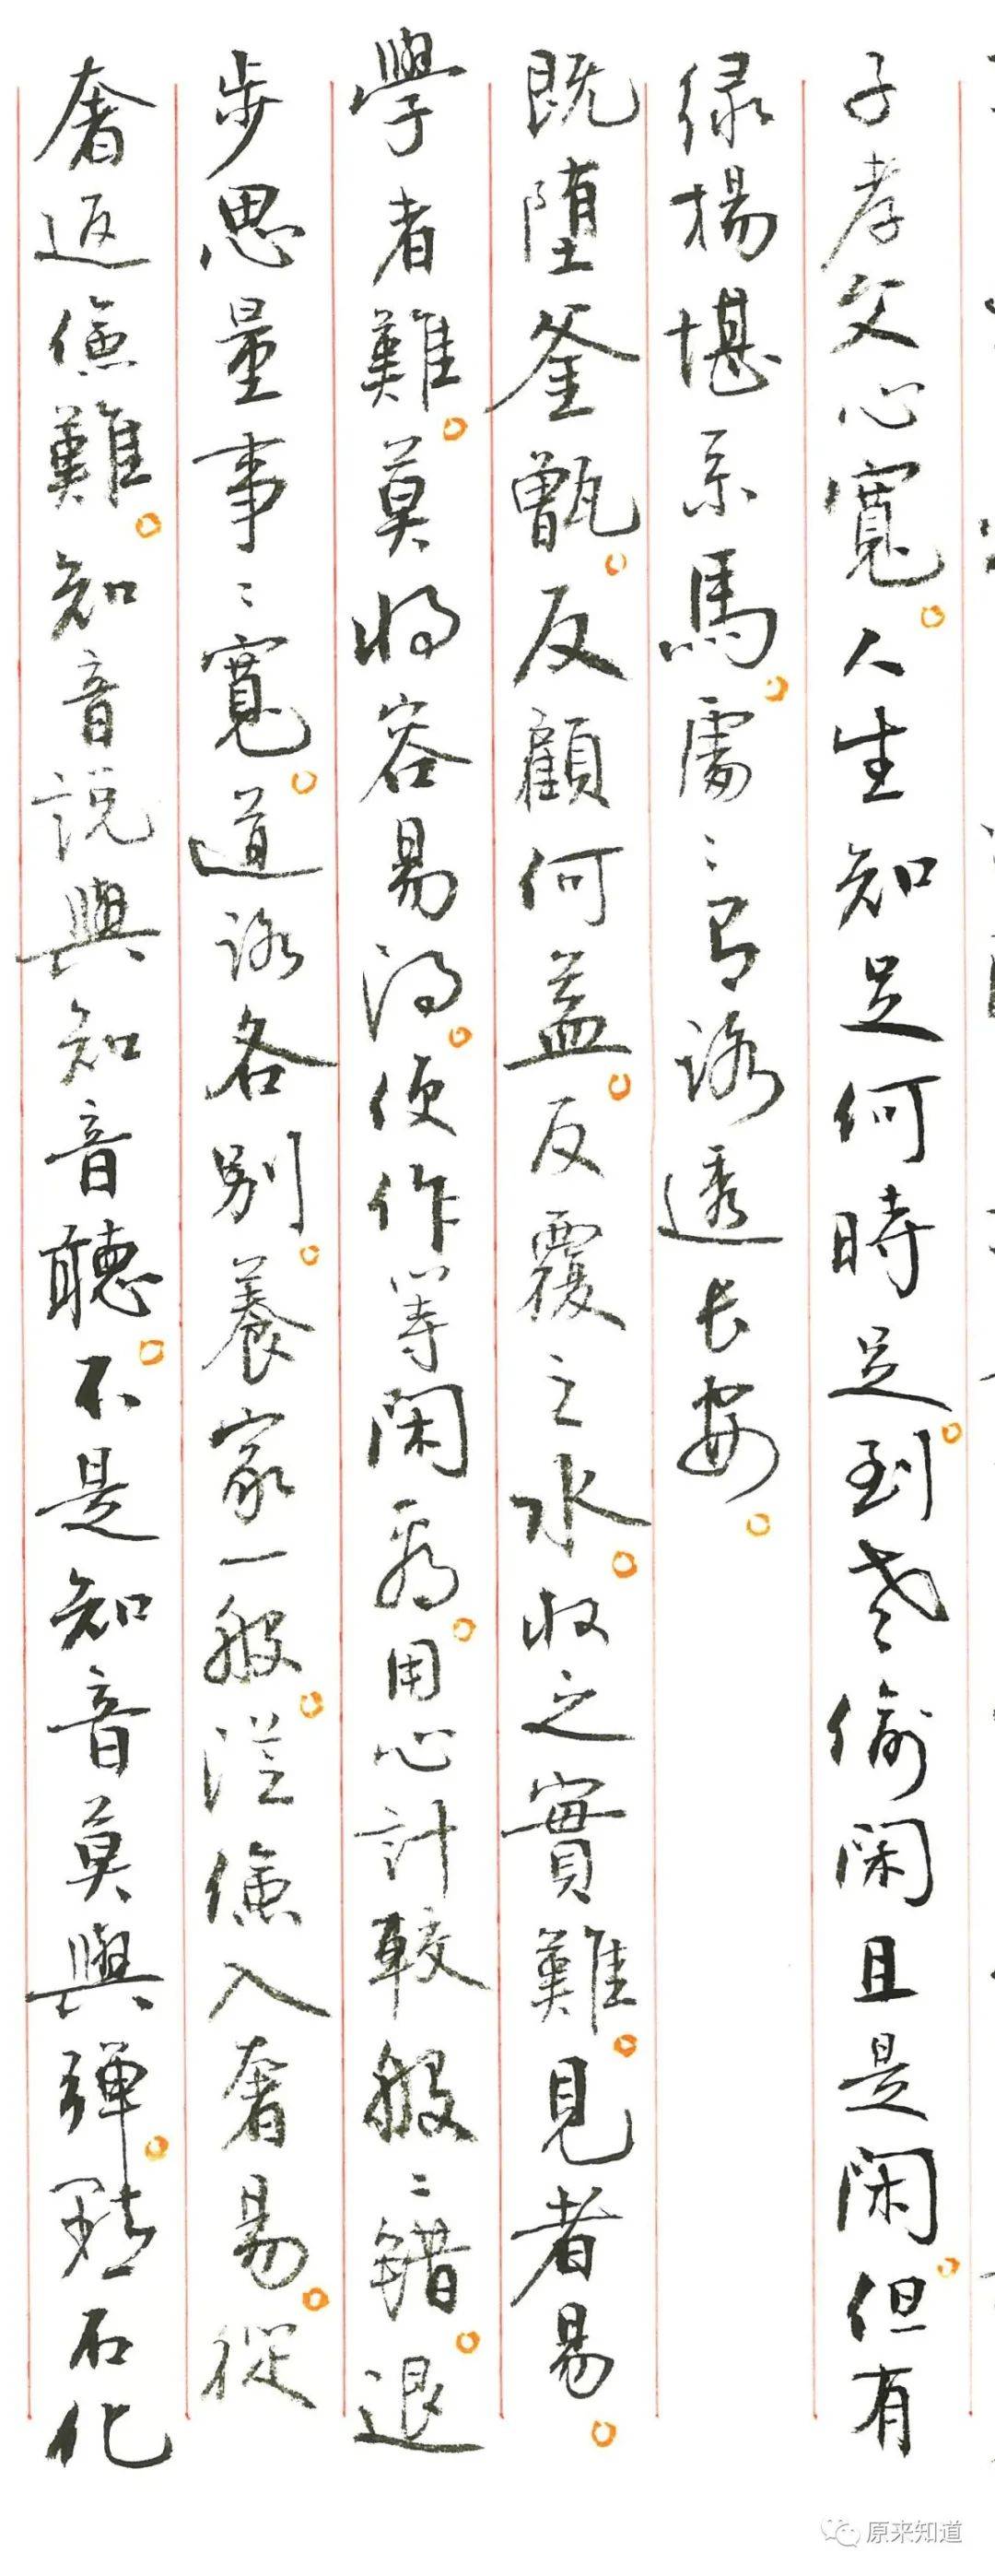 子孝父心寬。人生知足何時足。到老偷閑且是閑。但有
绿楊堪系馬。處〻有路透长安。
既堕釜甑。反顧何益。反覆之水。收之實難。見者易。
學者難。莫将容易得。便作等閑看。用心計較般〻錯。退
步思量事〻寬。道路各别。養家一般。從儉入奢易。從
奢返儉難。知音說與知音聽。不是知音莫與弹。點石化
原来知道